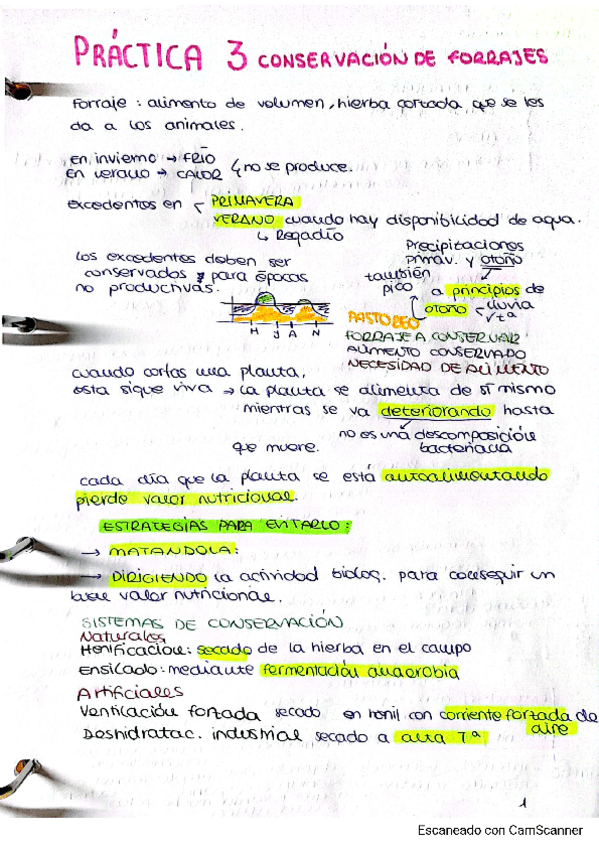 PRÁCTICA 3 CONSERVACIÓN DE FORRAJES
Forraje: alimento de volumen, hierba cortada que se les
da a los animales.
en invierno → FRÍO
en verano → CALOR no se produce.
excedentes en PRIMAVERA
VERANO cuando hay disponibilidad de agua.
↳ Regadío
Los excedentes deben ser
conservados para épocas
no productivas.
Precipitaciones
primav. y otoño
también
pico a principios de
otoño lluvia
Tª
H J A N
PASTOREO
FORRAJE A CONSERVAR
ALIMENTO CONSERVADO
NECESIDAD DE ALIMENTO
cuando cortas una planta,
esta sigue viva → La planta se alimenta de sí mismo
mientras se va deteriorando hasta
que muere.
no es una descomposición
bacteriana
cada día que la planta se está autoalimentando
pierde valor nutricional.
ESTRATEGIAS PARA EVITARLO:
→ MATANDOLA:
→ DIRIGIENDO la actividad biolog. para conseguir un
buen valor nutricional.
SISTEMAS DE CONSERVACIÓN
Naturales
Henificación: secado de la hierba en el campo
Ensilado: mediante fermentación anaerobia
Artificiales
Ventilación forzada secado en henil con corriente forzada de
aire
Deshidratac. industrial secado a alta Tª
1
Escaneado con CamScanner